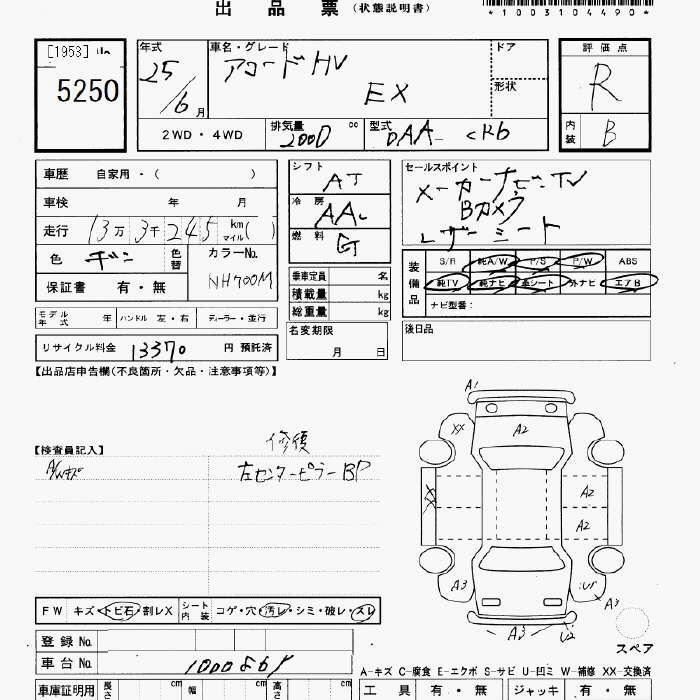 出品票 (状態説明書)
*1003104490*
[1953]
5250
年式 25/6月
車名・グレード アコードHV
EX
ドア
形状
評価点
R
内装 B
2WD・4WD
排気量 2000 cc
型式 DAA- CR6
車歴 自家用・( )
車検 年 月
走行 13万3千245 km マイル( )
色 ギン 色替
カラーNo. NH700M
保証書 有・無
シフト AT
冷房 AAC
燃料 G
乗車定員 名
積載量 kg
総重量 kg
セールスポイント
メーカーナビ・TV
Bカメラ
レザーシート
装備品
S/R 純A/W P/S P/W ABS
純TV 純ナビ 革シート 外ナビ エアB
ナビ型智:
モデル年式 年 ハンドル 左・右 ディーラー・並行
名変期限 月 日
後日品
リサイクル料金 13370 円 預託済
【出品店申告欄(不良箇所・欠品・注意事項等)】
【検査員記入】
修復
左センターピラーBP
A1
XX
A2
XX
A2
A2
A3
A3
U2
A3
FW キズ・トビ石・割レX シート内装 コゲ・穴・汚レ・シミ・破レ・スレ
スペア
登録 No.
車台 No.
A-キズ C-腐食 E-エクボ S-サビ U-凹ミ W-補修 XX-交換済
車庫証明用 長さ cm 幅 cm 高さ cm
工具 有・無 ジャッキ 有・無